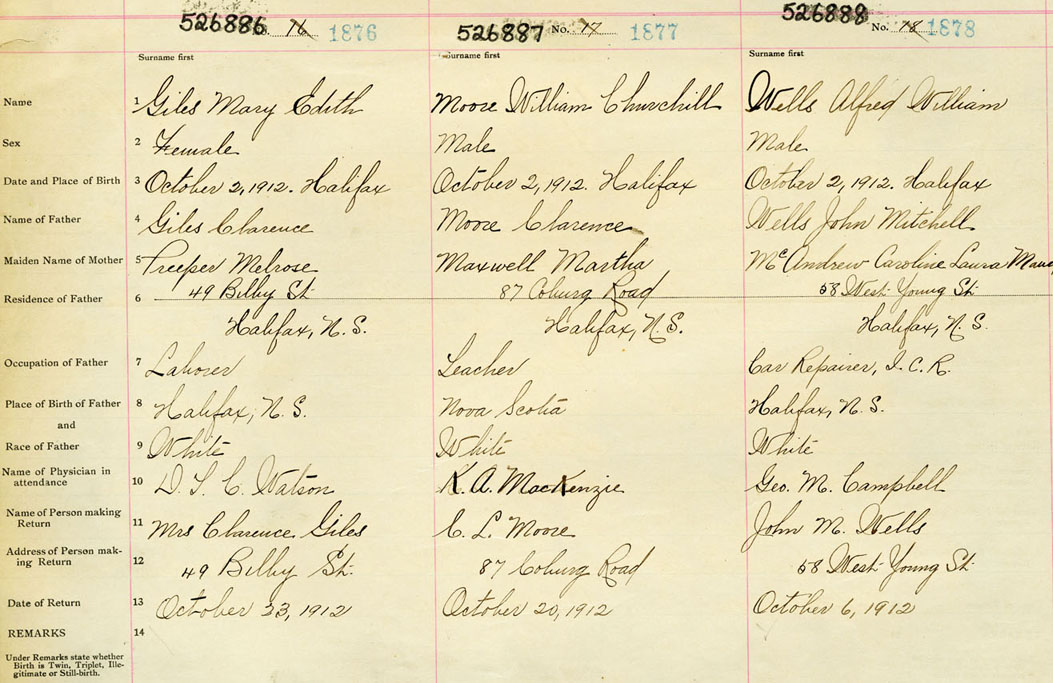 526886 16 1876 526887 No. 17 1877 526888 No. 18 1878
Surname first Surname first Surname first
Name 1 Giles Mary Edith Moore William Churchill Wells Alfred William
Sex 2 Female Male Male
Date and Place of Birth 3 October 2, 1912. Halifax October 2, 1912. Halifax October 2, 1912. Halifax
Name of Father 4 Giles Clarence Moore Clarence Wells John Mitchell
Maiden Name of Mother 5 Preeper Melrose Maxwell Martha McAndrew Caroline Laura
Residence of Father 6 49 Bilby St. 87 Coburg Road 58 West Young St.
Halifax, N. S. Halifax, N. S. Halifax, N. S.
Occupation of Father 7 Laborer Teacher Car Repairer, I. C. R.
Place of Birth of Father 8 Halifax, N. S. Nova Scotia Halifax, N. S.
and
Race of Father 9 White White White
Name of Physician in
attendance 10 Watson K. A. MacKenzie Geo. M. Campbell
Name of Person making
Return 11 Mrs Clarence Giles C. L. Moore John M. Wells
Address of Person mak-
ing Return 12 49 Bilby St. 87 Coburg Road 58 West Young St.
Date of Return 13 October 23, 1912 October 20, 1912 October 6, 1912
REMARKS 14
Under Remarks state whether
Birth is Twin, Triplet, Ille-
gitimate or Still-birth.